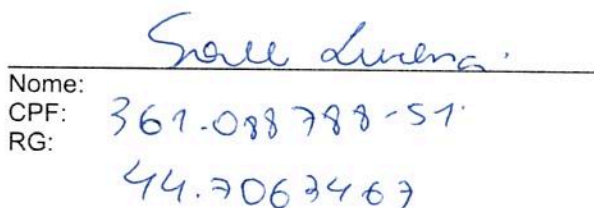 Nome:
CPF: 361.088788-51
RG:
44.7063467